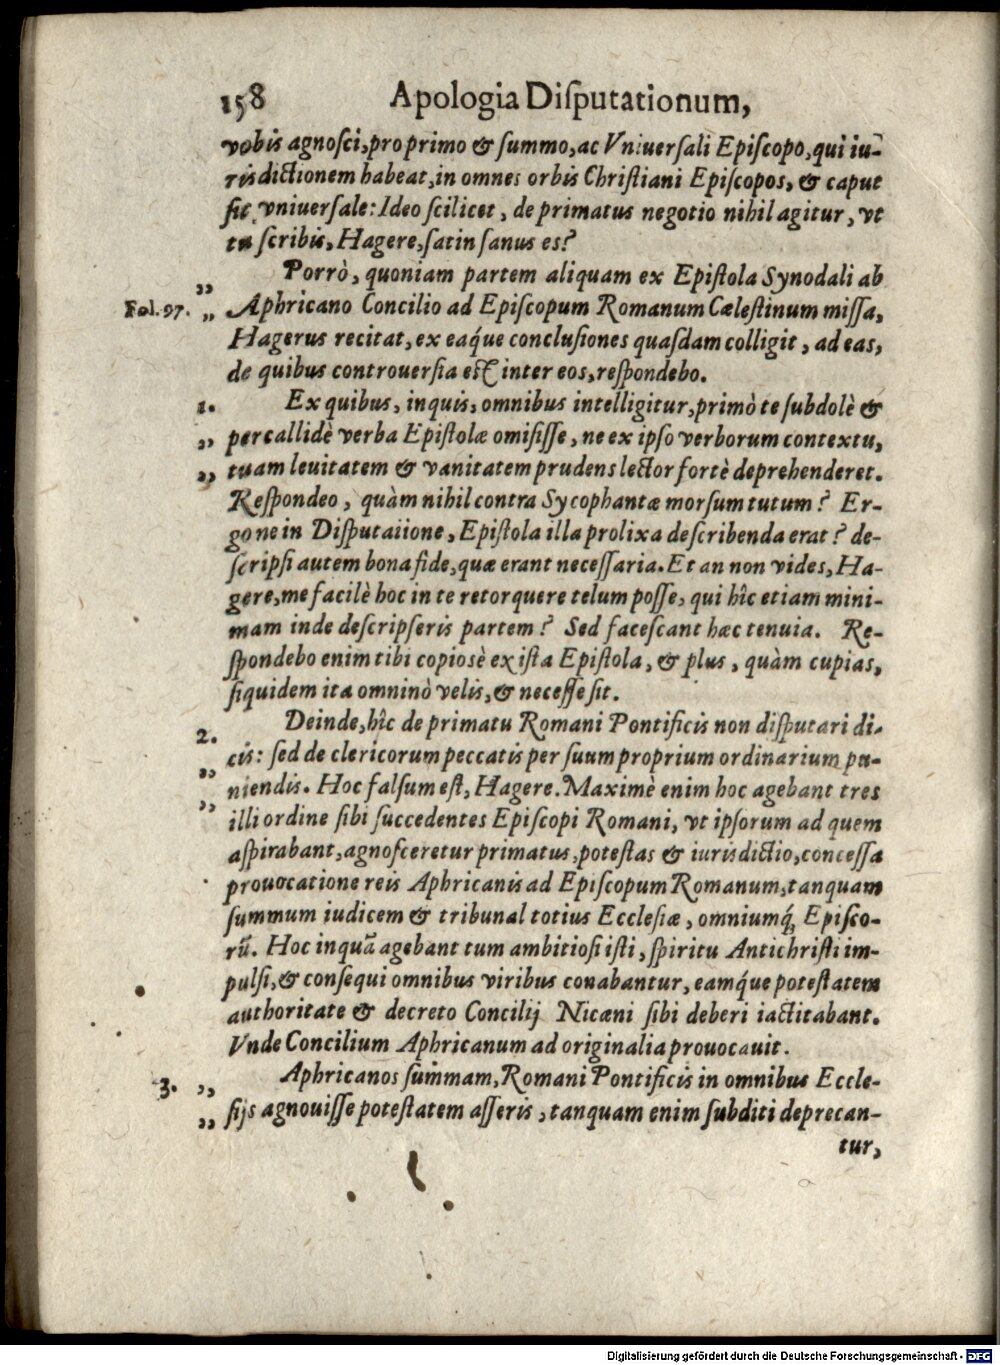 158 Apologia Diſputationum,
vobis agnoſci, pro primo & ſummo, ac Vniuerſali Epiſcopo, qui iu-
risdictionem habeat, in omnes orbis Chriſtiani Epiſcopos, & caput
ſit vniuerſale: Ideo ſcilicet, de primatus negotio nihil agitur, vt
tu ſcribis, Hagere, ſatin ſanus es?
Porrò, quoniam partem aliquam ex Epiſtola Synodali ab
Fol. 97. „ Aphricano Concilio ad Epiſcopum Romanum Cæleſtinum miſſa,
Hagerus recitat, ex eaq́ue concluſiones quaſdam colligit, ad eas,
de quibus controuerſia eſt inter eos, reſpondebo.
1. Ex quibus, inquis, omnibus intelligitur, primò te ſubdolè &
„ percallidè verba Epiſtolæ omiſiſſe, ne ex ipſo verborum contextu,
„ tuam leuitatem & vanitatem prudens lector fortè deprehenderet.
Reſpondeo, quàm nihil contra Sycophantæ morſum tutum? Er-
gone in Diſputatione, Epiſtola illa prolixa deſcribenda erat? de-
ſcripſi autem bona fide, quæ erant neceſſaria. Et an non vides, Ha-
gere, me facilè hoc in te retorquere telum poſſe, qui hîc etiam mini-
mam inde deſcripſeris partem? Sed faceſcant hæc tenuia. Re-
ſpondebo enim tibi copiosè ex iſta Epiſtola, & plus, quàm cupias,
ſiquidem ita omninò velis, & neceſſe ſit.
2. Deinde, hîc de primatu Romani Pontificis non diſputari di-
cis: ſed de clericorum peccatis per ſuum proprium ordinarium pu-
„ niendis. Hoc falſum eſt, Hagere. Maximè enim hoc agebant tres
„ illi ordine ſibi ſuccedentes Epiſcopi Romani, vt ipſorum ad quem
aſpirabant, agnoſceretur primatus, poteſtas & iurisdictio, conceſſa
prouocatione reis Aphricanis ad Epiſcopum Romanum, tanquam
ſummum iudicem & tribunal totius Eccleſiæ, omniumq́; Epiſco-
rū. Hoc inquā agebant tum ambitioſi iſti, ſpiritu Antichriſti im-
pulſi, & conſequi omnibus viribus conabantur, eamq́ue poteſtatem
authoritate & decreto Concilij Nicæni ſibi deberi iactitabant.
Vnde Concilium Aphricanum ad originalia prouocauit.
3. „ Aphricanos ſummam, Romani Pontificis in omnibus Eccle-
„ ſijs agnouiſſe poteſtatem aſſeris, tanquam enim ſubditi deprecan-
tur,
Digitalisierung gefördert durch die Deutsche Forschungsgemeinschaft - DFG